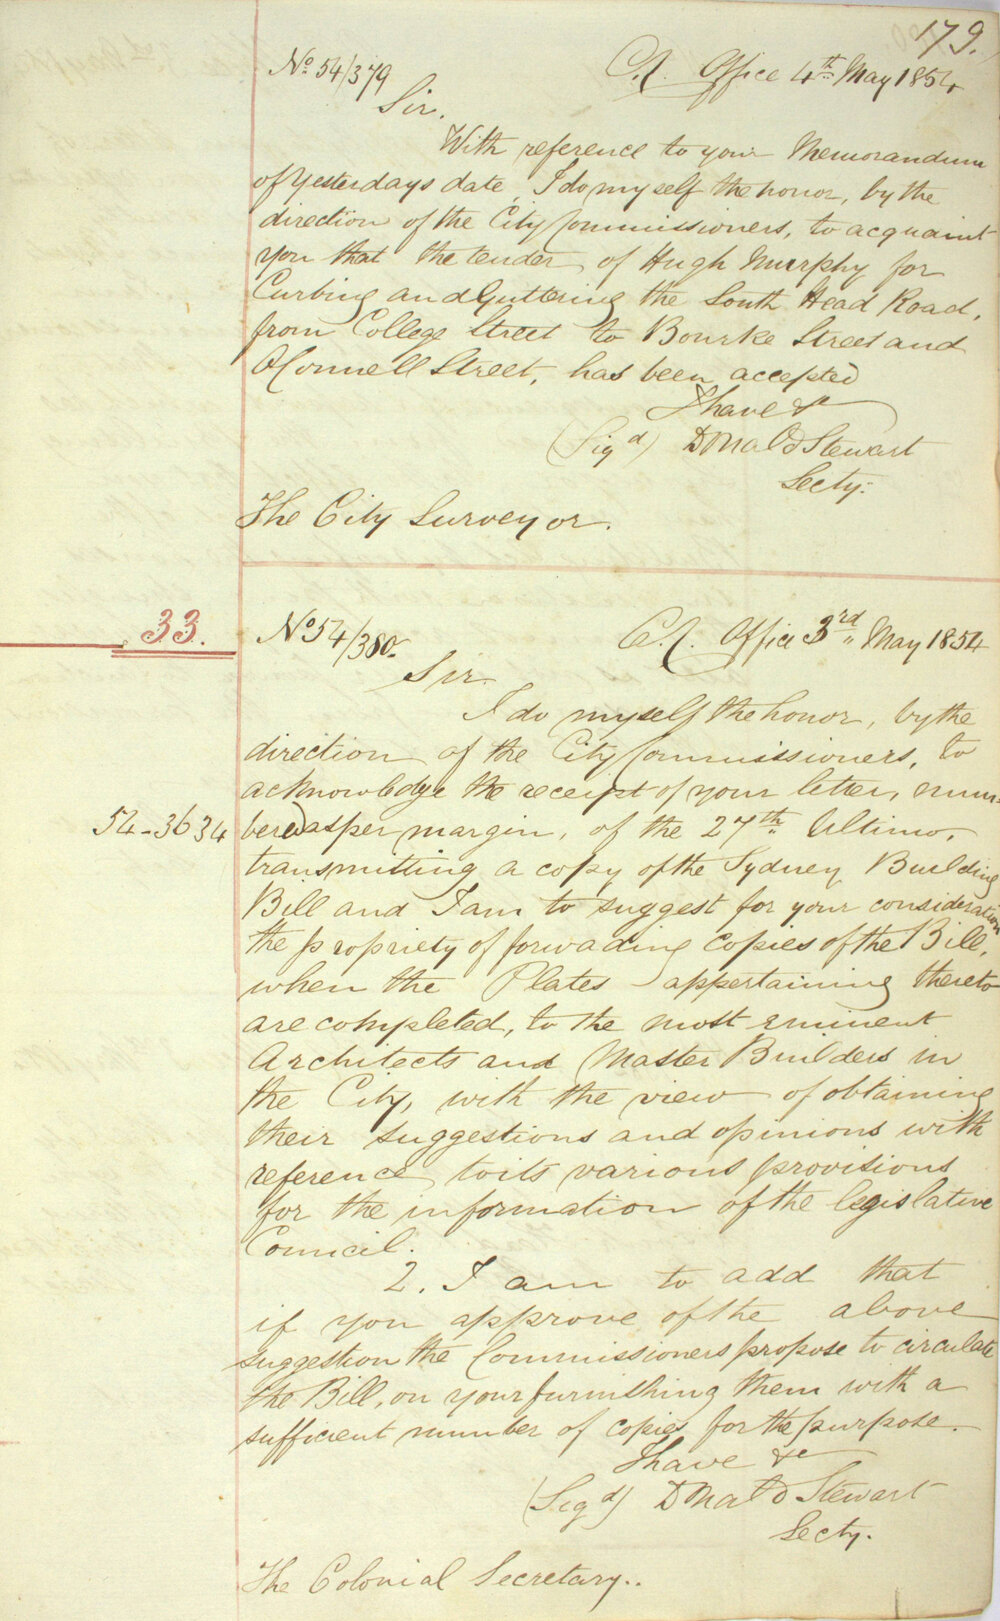 179.
No. 54/379
C.C. Office 4th May 1854
Sir.
With reference to your Memorandum
of Yesterdays date, I do myself the honor, by the
direction of the City Commissioners, to acquaint
you that the tender of Hugh Murphy for
Curbing and Guttering the South Head Road,
from College Street to Bourke Street and
O'Connell Street, has been accepted
I have &c
(Sigd) Donald Stewart
Secty:
The City Surveyor.
33.
No 54/380.
C.C. Office 3rd May 1854
Sir.
I do myself the honor, by the
direction of the City Commissioners, to
acknowledge the receipt of your letter, num-
54-3634
bered as per margin, of the 27th Ultimo,
transmitting a copy of the Sydney Building
Bill and I am to suggest for your consideration
the propriety of forwading copies of the Bill,
when the Plates appertaining thereto
are completed, to the most eminent
Architects and Master Builders in
the City, with the view of obtaining
their suggestions and opinions with
reference to its various provisions
for the information of the legislative
Council.
2. I am to add that
if you approve of the above
suggestion the Commissioners propose to circulate
the Bill, on your furnishing them with a
sufficient number of copies for the purpose.
I have &c
(Sigd) Donald Stewart
Secty.
The Colonial Secretary..